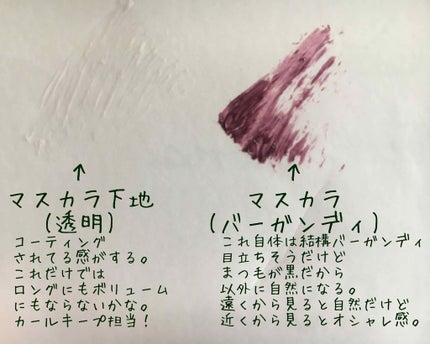 ↑
マスカラ下地
(透明)
コーティング
されてる感がする。
これだけでは
ロングにもボリューム
にもならないかな。
カールキープ担当!
↑
マスカラ
(バーガンディ)
これ自体は結構バーガンディ
目立ちそうだけど
まつ毛が黒だから
以外に自然になる。
遠くから見ると自然だけど
近くから見るとオシャレ感。